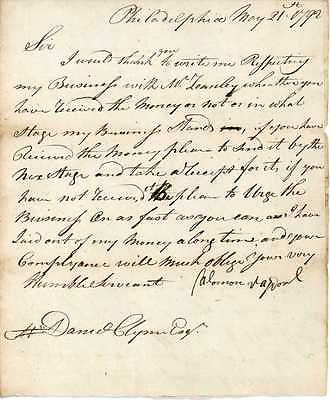 Philadelphia May 21st 1792
Sir
I would thank you to write me Respecting
my Business with Mr. whether you
have Received the Money or not or in what
Stage my Business Stands if you have
Received the Money please to Send it by the
Nex Stage and take a Receipt for it, if you
have not Received it please to Urge the
Business On as fast as you can as I have
Laid out of my Money a long time and your
Complyance will Much oblige your very
Humble Servant Solomon
Daniel Clymer Esqr.